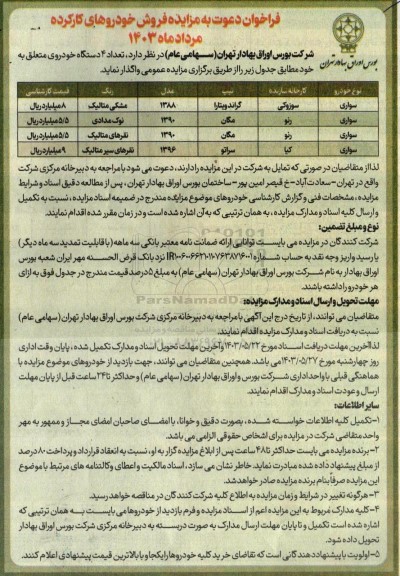 فراخوان دعوت به مزایده فروش خودروهای کارکرده
مردادماه ۱۴۰۳
بورس اوراق بهادار تهران
شرکت بورس اوراق بهادار تهران (سهامی عام) در نظر دارد، تعداد ۴ دستگاه خودروی متعلق به
خود مطابق جدول زیر را از طریق برگزاری مزایده عمومی واگذار نماید.
نوع خودرو کارخانه سازنده تیپ مدل رنگ قیمت کارشناسی
سواری سوزوکی گراند ویتارا ۱۳۸۸ مشکی متالیک ۸ میلیارد ریال
سواری رنو مگان ۱۳۹۰ نوک مدادی ۵/۵ میلیارد ریال
سواری رنو مگان ۱۳۹۰ نقره‌ای متالیک ۵/۵ میلیارد ریال
سواری کیا سراتو ۱۳۹۶ نقره‌ای سیر متالیک ۹ میلیارد ریال
لذا از متقاضیان در صورتی که تمایل به شرکت در این مزایده را دارند، دعوت می شود با مراجعه به دبیرخانه مرکزی شرکت
واقع در تهران - سعادت‌آباد - خ قیصر امین پور - ساختمان بورس اوراق بهادار تهران، پس از مطالعه دقیق اسناد و شرایط
مزایده، مشخصات فنی و گزارش کارشناسی خودروهای موضوع مزایده مندرج در ضمیمه اسناد مزایده، نسبت به تکمیل
و ارسال کلیه اسناد و مدارک مزایده، به همان ترتیبی که به آن اشاره شده است و در زمان مقرر شده اقدام نمایند.
نوع و مبلغ تضمین:
شرکت کنندگان در مزایده می بایست توانایی ارائه ضمانت نامه معتبر بانکی سه ماهه (با قابلیت تمدید سه ماه دیگر)
یا رسید واریز وجه نقد به حساب شماره نزد بانک قرض الحسنه مهر ایران شعبه بورس
اوراق بهادار به نام شرکت بورس اوراق بهادار تهران (سهامی عام) به مبلغ ۵ درصد قیمت مندرج در جدول فوق به ازای
هر خودرو را داشته باشند.
مهلت تحویل و ارسال اسناد و مدارک مزایده:
متقاضیان می توانند، از تاریخ درج این آگهی با مراجعه به دبیرخانه مرکزی شرکت بورس اوراق بهادار تهران (سهامی عام)
نسبت به دریافت اسناد و مدارک مزایده اقدام نمایند.
لذا آخرین مهلت دریافت اسناد مورخ ۱۴۰۳/۰۵/۲۲ و آخرین مهلت تحویل اسناد و مدارک تکمیل شده، پایان وقت اداری
روز چهارشنبه مورخ ۱۴۰۳/۰۵/۲۷ می باشد. همچنین متقاضیان می توانند، جهت بازدید از خودروهای موضوع مزایده با
هماهنگی قبلی با واحد اداری شرکت بورس و اوراق بهادار تهران (سهامی عام) و حداکثر تا ۲۴ ساعت قبل از پایان مهلت
ارسال و عودت اسناد و مدارک اقدام نمایند.
سایر اطلاعات:
۱- تکمیل کلیه اطلاعات خواسته شده، بصورت دقیق و خوانا، با امضای صاحبان امضای مجاز و ممهور به مهر
واحد متقاضی شرکت در مزایده برای اشخاص حقوقی الزامی می باشد.
۲- برنده مزایده می بایست حداکثر تا ۴۸ ساعت پس از ابلاغ مزایده گزار به او، نسبت به انعقاد قرارداد و پرداخت ۸۰ درصد
از مبلغ پیشنهاد داده شده مبادرت نماید. خاطر نشان می سازد، اسناد مالکیت و اعطای وکالتنامه های مرتبط با موضوع
این مزایده صرفاً بنام برنده مزایده صادر خواهد شد.
۳- هرگونه تغییر در شرایط و زمان مزایده به اطلاع کلیه شرکت کنندگان در مناقصه خواهد رسید.
۴- کلیه مدارک مربوط به این مزایده اعم از اسناد مزایده و فرم بازدید از خودروها می بایست به همان ترتیبی که
اشاره شده است تکمیل و تا پایان مهلت ارسال مدارک به صورت دربسته به دبیرخانه مرکزی شرکت بورس اوراق بهادار
تهران تحویل داده شود.
۵- اولویت با پیشنهاد دهندگانی است که تقاضای خرید کلیه خودروها را یکجا و با بالاترین قیمت پیشنهادی اعلام کنند.